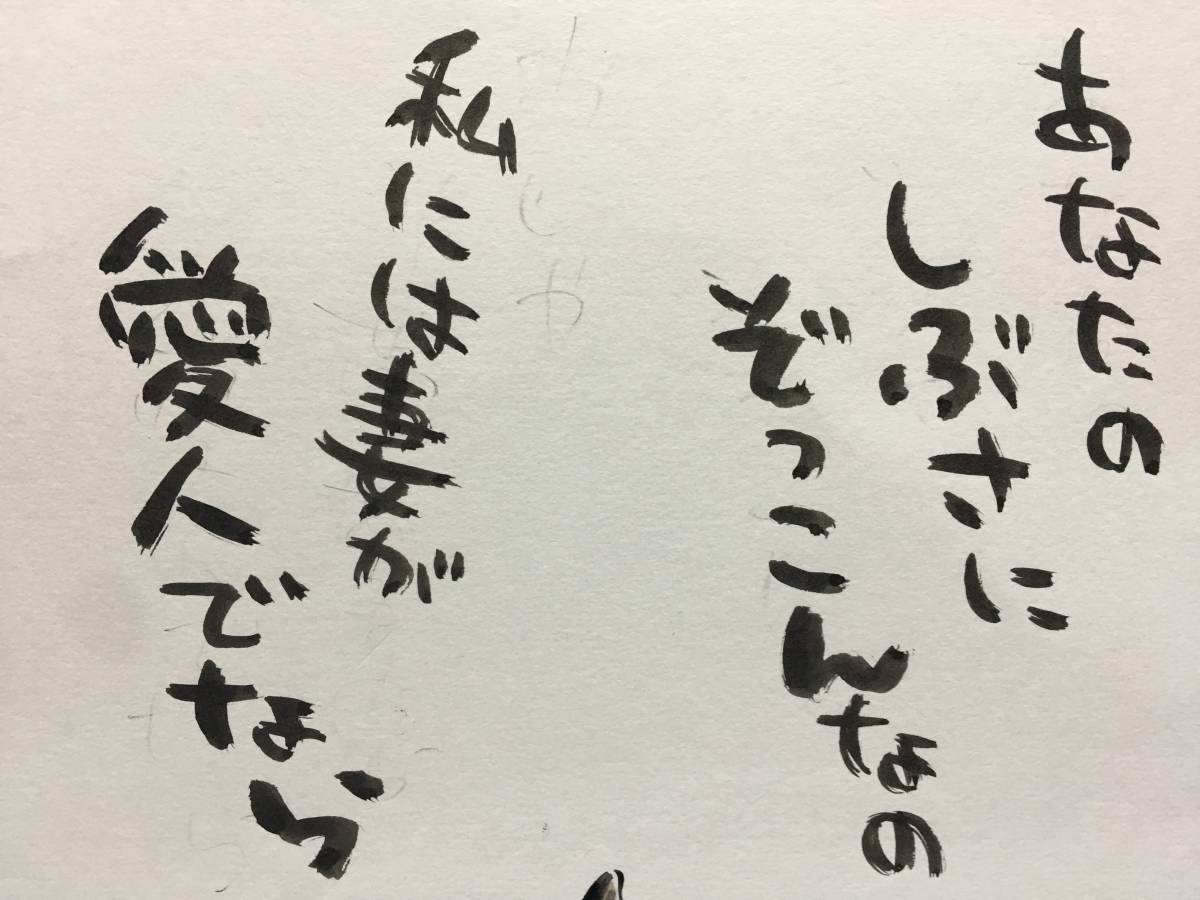 あなたの
しぶさに
ぞっこんなの
私には妻が
愛人でなら